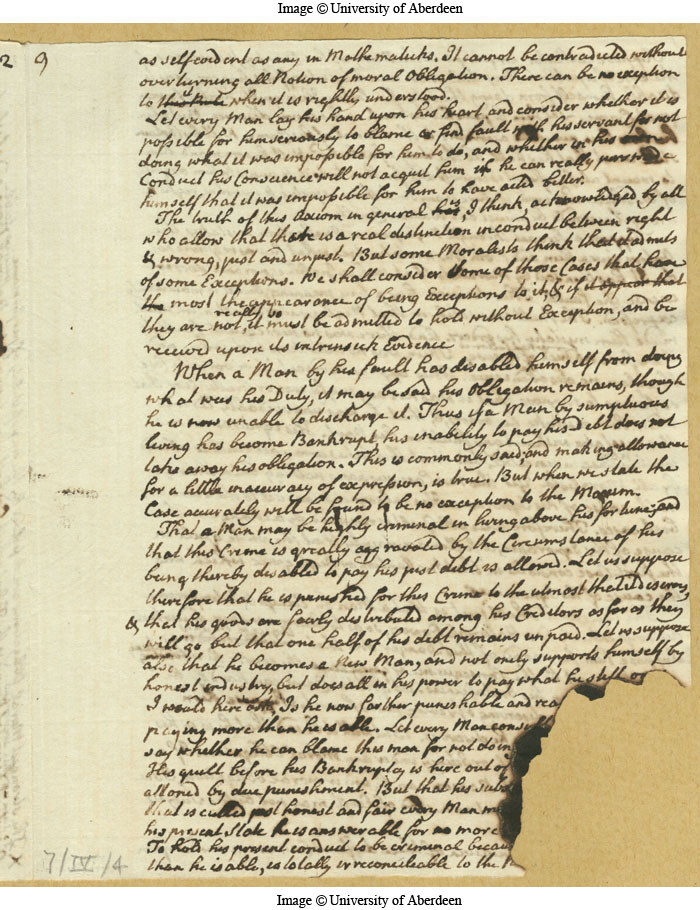 Image © University of Aberdeen
2 9
as selfevident as any in Mathematicks. It cannot be contradicted without
overturning all Notion of moral Obligation. There can be no exception
to when it is rightly understood.
Let every Man lay his hand upon his heart and consider whether it is
possible for him seriously to blame or find fault with his servant for not
doing what it was impossible for him to do, and whether in his
Conduct his Conscience will not acquit him if he can really
himself that it was impossible for him to have acted better.
The truth of this axiom in general is, I think, acknowledged by all
who allow that there is a real distinction in conduct between right
& wrong, just and unjust. But some Moralists think that it admits
of some Exceptions. We shall consider some of those Cases that have
the most the appearance of being Exceptions to it, & if it appear that
really be
they are not, it must be admitted to hold without Exception, and be
received upon its intrinsick Evidence
When a Man by his fault has disabled himself from doing
what was his Duty, it may be said his Obligation remains, though
he is now unable to discharge it. Thus if a Man by sumptuous
living has become Bankrupt, his inability to pay his debt does not
take away his obligation. This is commonly said, and making allowance
for a little inaccuracy of expression, is true. But when we state the
Case accurately will be found to be no exception to the Maxim.
That a Man may be highly criminal in living above his fortune, and
that this Crime is greatly aggravated by the Circumstance of his
being thereby disabled to pay his just debt is allowed. Let us suppose
therefore that he is punished for this Crime to the utmost that it deserves,
& that his goods are fairly distributed among his Creditors as far as they
will go but that one half of his debt remains unpaid. Let us suppose
also that he becomes a New Man, and not only supports himself by
honest industry, but does all in his power to pay what he still
I would here ask, Is he now farther punishable and rea
paying more than he is able. Let every Man consult
say whether he can blame this man for not doin
His guilt before his Bankruptcy is here out of
attoned by due punishment. But that his subs
that is called just honest and fair every Man m
his present State he is answerable for no more
To hold his present conduct to be criminal becau
than he is able, is totally irreconcileable to the
7/IV/4
Image © University of Aberdeen